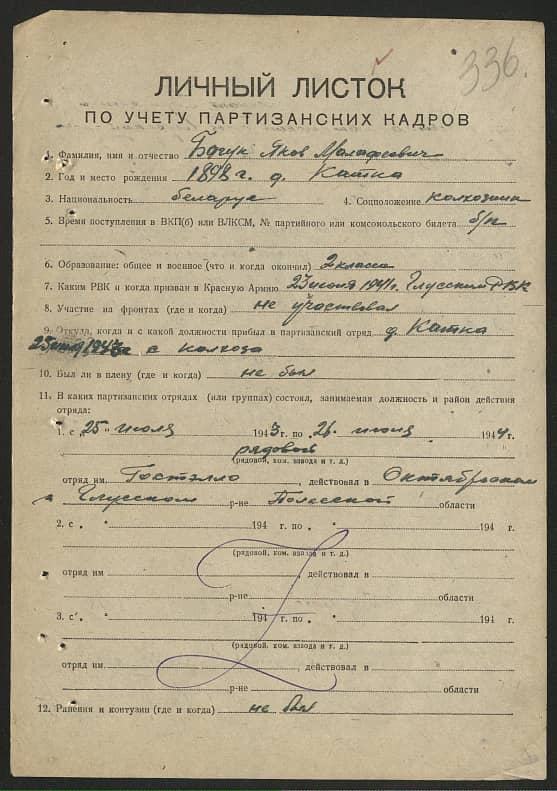 336.
ЛИЧНЫЙ ЛИСТОК
ПО УЧЕТУ ПАРТИЗАНСКИХ КАДРОВ
1. Фамилия, имя и отчество Яков
2. Год и место рождения 1898 г. д. Катка
3. Национальность беларус 4. Соцположение колхозник
5. Время поступления в ВКП(б) или ВЛКСМ, № партийного или комсомольского билета б/п
6. Образование: общее и военное (что и когда окончил) 2 класса
7. Каким РВК и когда призван в Красную Армию 23 июля 1941 г. Глусским РВК
8. Участие на фронтах (где и когда) не участвовал
9. Откуда, когда и с какой должности прибыл в партизанский отряд д. Катка
с колхоза
10. Был ли в плену (где и когда) не был
11. В каких партизанских отрядах (или группах) состоял, занимаемая должность и район действия
отряда:
1. с „25“ июля 1943 г. по „26“ июня 1944 г.
рядовой
(рядовой, ком. взвода и т. д.)
отряд им Гостэлло, действовал в Октябрьском
и Глусском р-не Полесской области
2. с „ “ 194 г. по „ “ 194 г.
(рядовой, ком. взвода и т. д.)
отряд им , действовал в
р-не области
3. с „ “ 194 г. по „ “ 194 г.
(рядовой, ком. взвода и т. д.)
отряд им. , действовал в
р-не области
12. Ранения и контузии (где и когда) не был